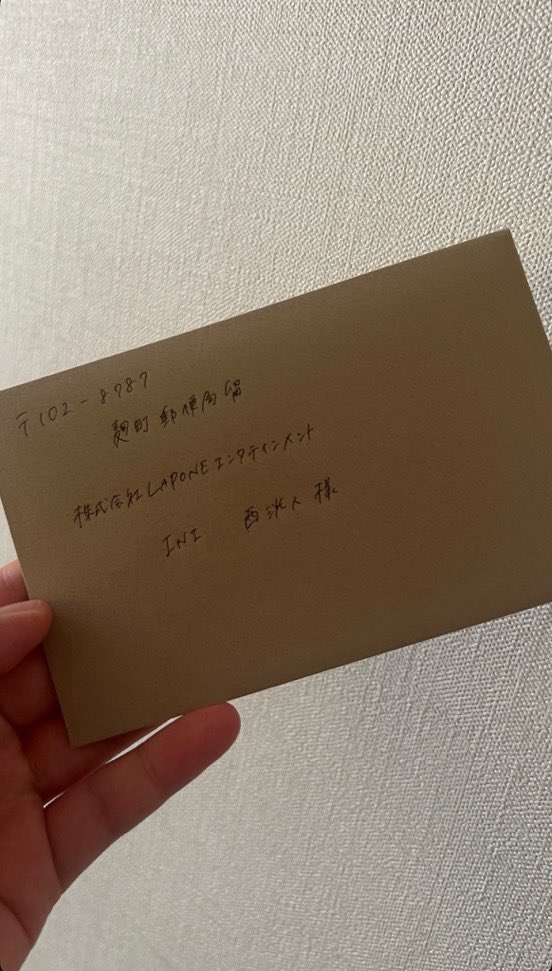 〒102-8787
麹町郵便局留
株式会社LAPONEエンタテインメント
INI 西洸人 様